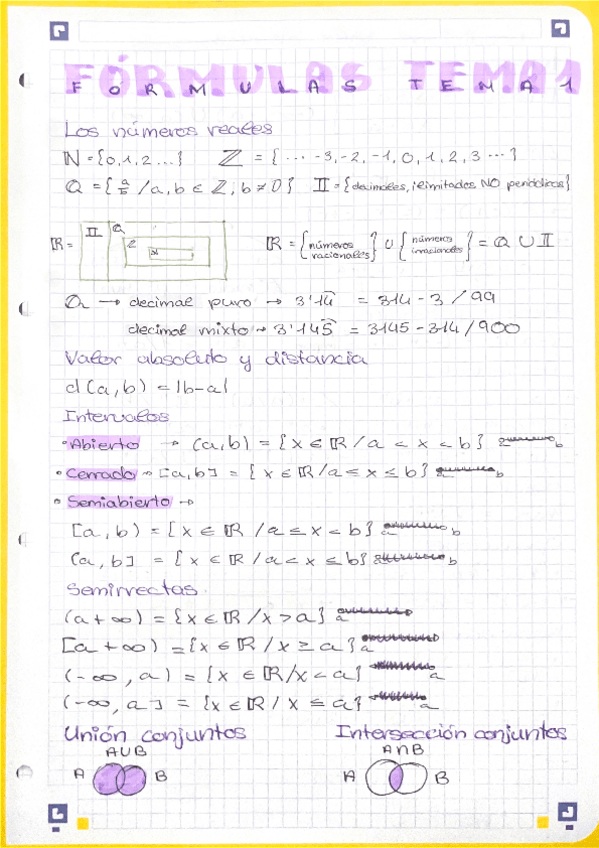 FÓRMULAS TEMA 1
Los números reales
ℕ = {0, 1, 2 ...} ℤ = { ... -3, -2, -1, 0, 1, 2, 3 ...}
Q = { a/b / a, b ∈ ℤ, b ≠ 0} II = {decimales, ilimitados, NO periódicos}
ℝ = II Q Z N ℝ = {números racionales} ∪ {números irracionales} = Q ∪ II
Q → decimal puro → 3'1͡4 = 314 - 3 / 99
decimal mixto → 3'145͡ = 3145 - 314 / 900
Valor absoluto y distancia
d(a, b) = |b-a|
Intervalos
• Abierto → (a, b) = {x ∈ ℝ / a < x < b} a b
• Cerrado → [a, b] = {x ∈ ℝ / a ≤ x ≤ b} a b
• Semiabierto →
[a, b) = {x ∈ ℝ / a ≤ x < b} a b
(a, b] = {x ∈ ℝ / a < x ≤ b} a b
Semirrectas
(a + ∞) = {x ∈ ℝ / x > a} a
[a + ∞) = {x ∈ ℝ / x ≥ a} a
(-∞, a) = {x ∈ ℝ / x < a} a
(-∞, a] = {x ∈ ℝ / x ≤ a} a
Unión conjuntos Intersección conjuntos
A∪B A∩B
A B A B